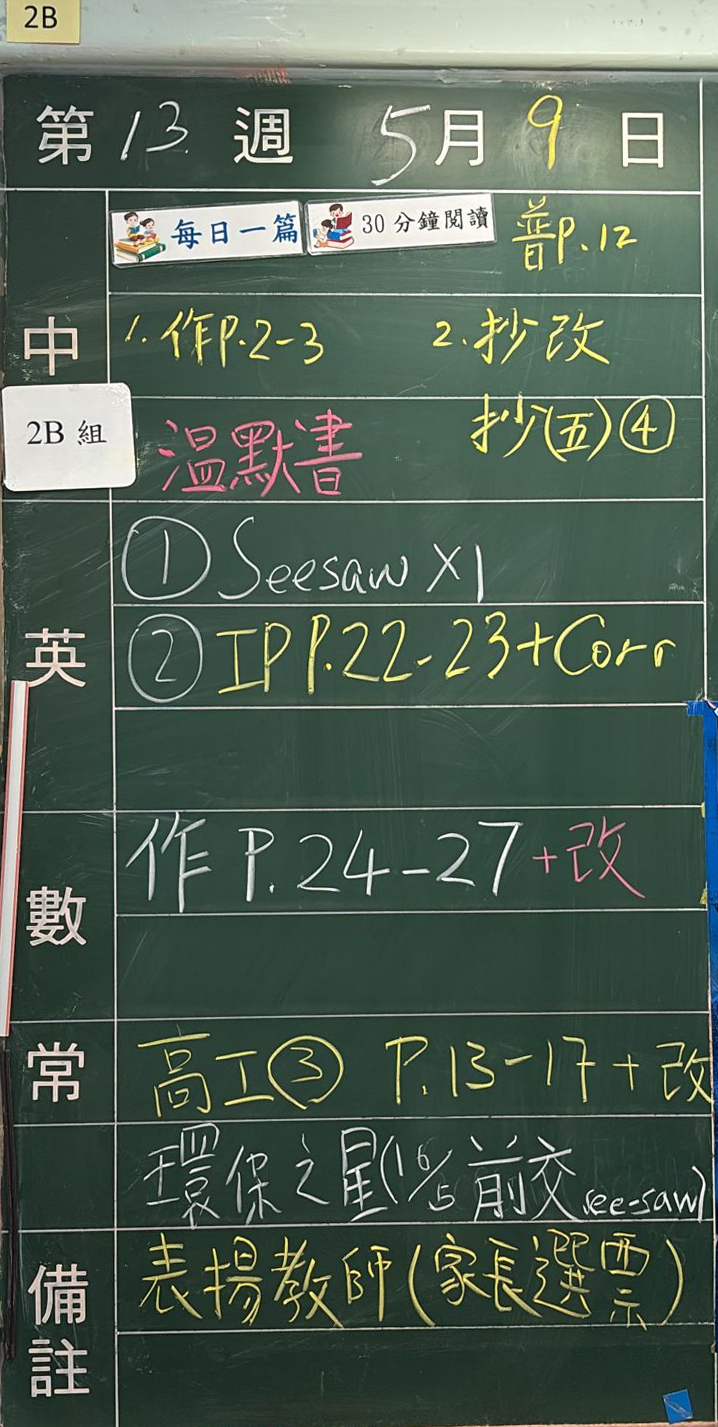 2B
第 13 週 5月 9 日
每日一篇 30分鐘閱讀 普P.12
中 1.作P.2-3 2.抄改
2B 組 溫默書 抄(五)④
①Seesaw X1
英 ②IP P.22-23+Corr
作 P.24-27+改
數
常 高工③ P.13-17+改
環保之星(16/5前交see-saw)
備註 表揚教師(家長選票)